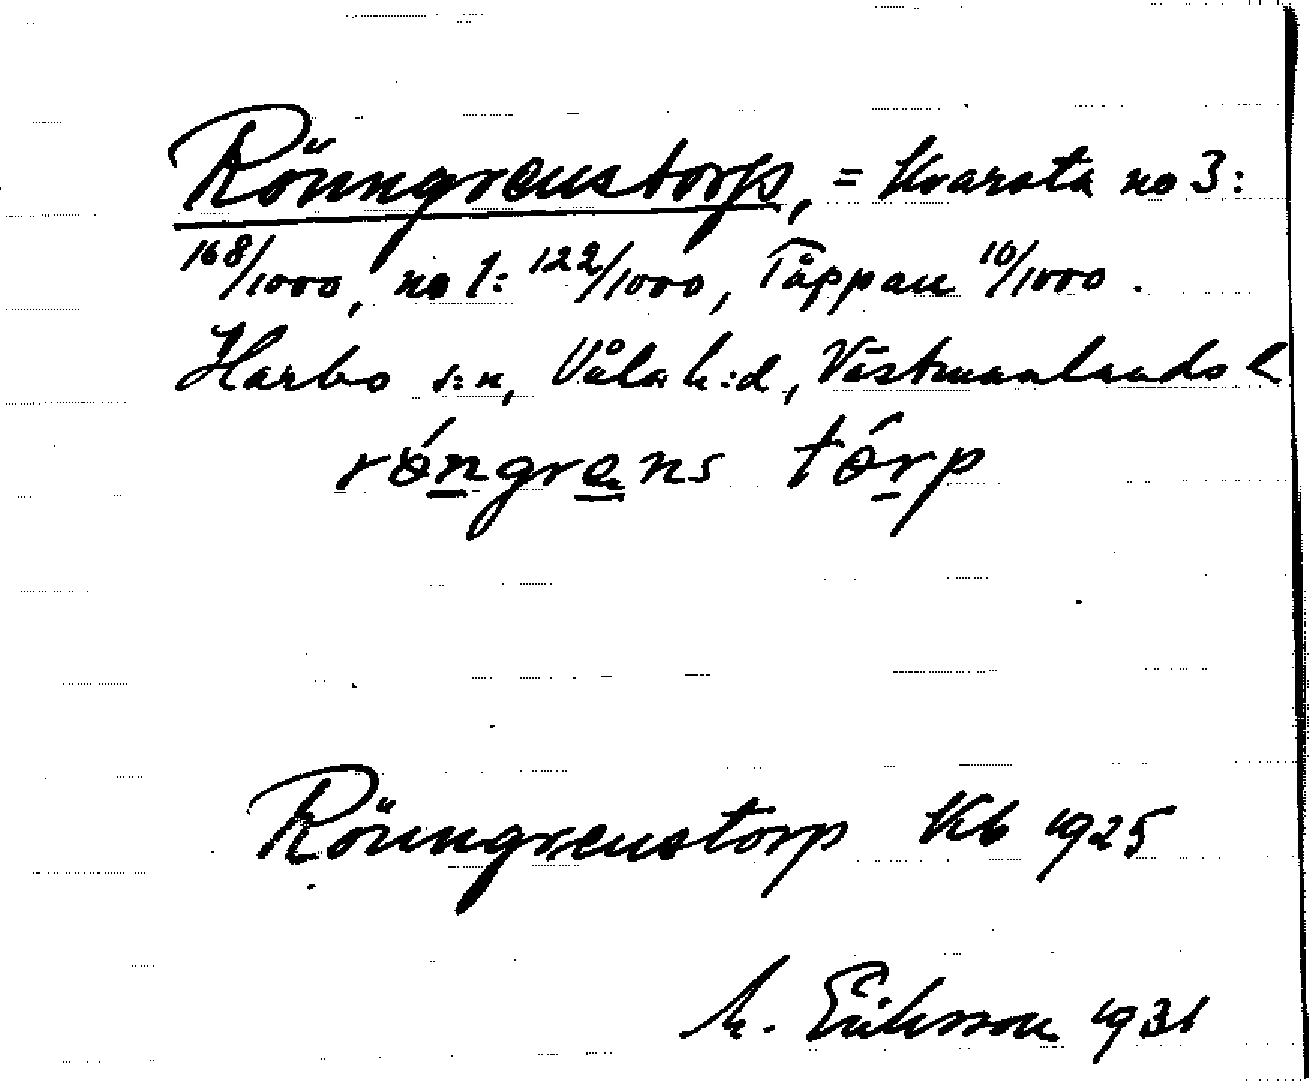 Rönngrenstorp, = Kvarsta no 3:
168/1000, no 1: 122/1000, Täppan 10/1000.
Harbo s:n, Våla h:d, Västmanlands l
róngrens tórp
Rönngrenstorp Kb 1925
M. Eriksson 1931